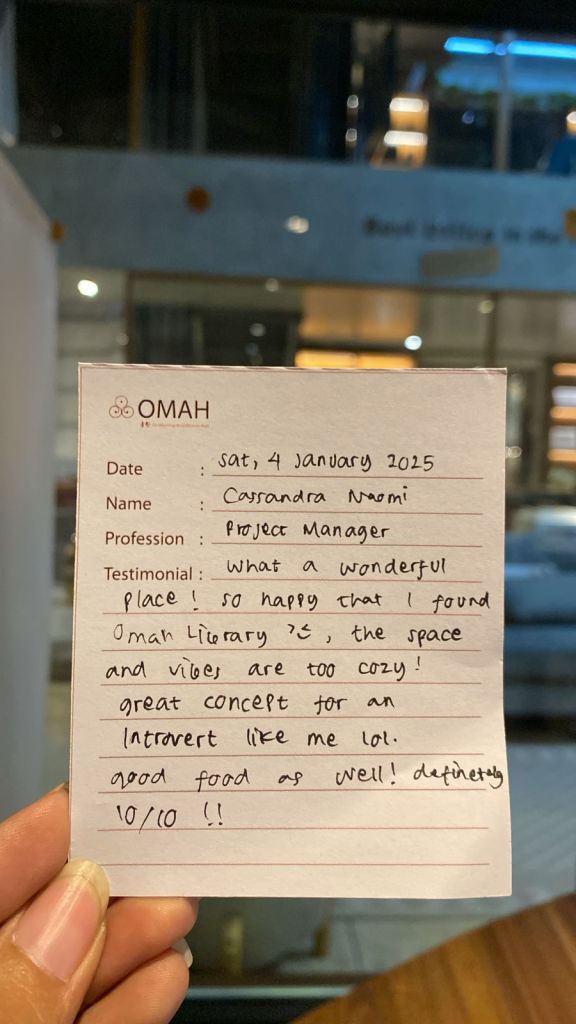 OMAH
Date : Sat, 4 January 2025
Name : Cassandra Naomi
Profession : Project Manager
Testimonial : What a wonderful
place! so happy that I found
Omah Library, the space
and vibes are too cozy!
great concept for an
Introvert like me lol.
good food as well! definetely
10/10 !!